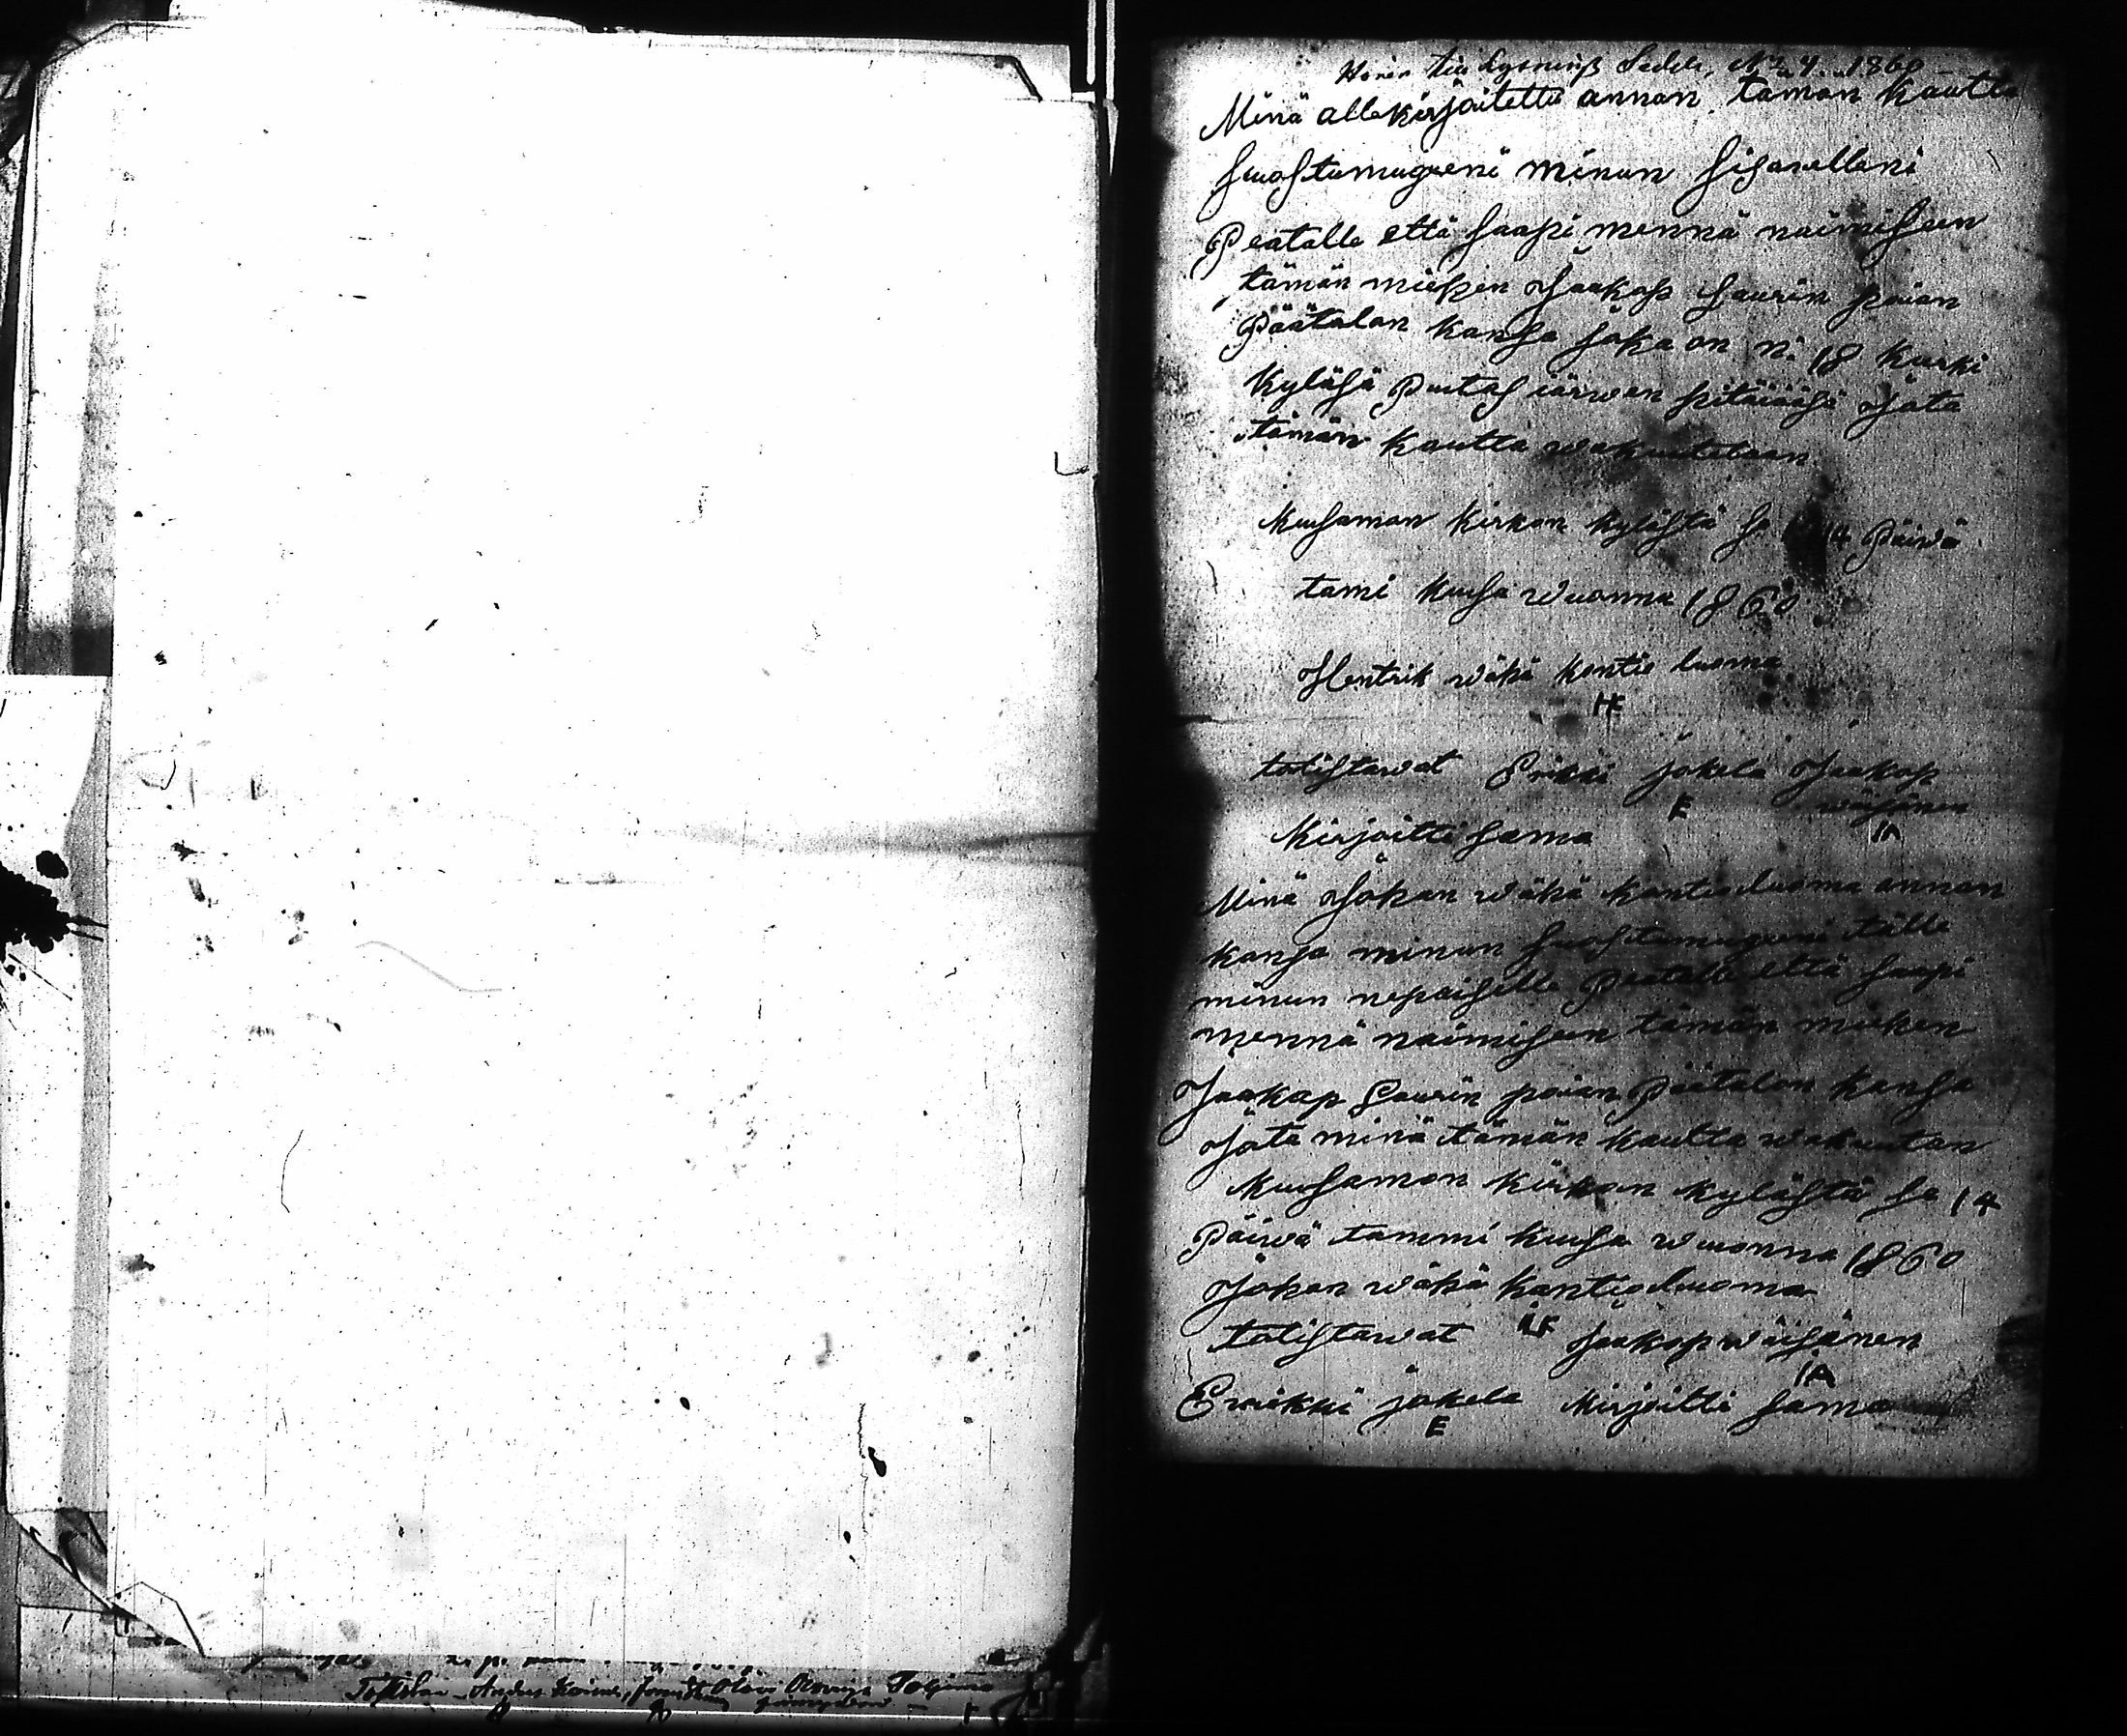 Hörer till Lysnings Sedel, N:o 4. 1860
Minä allekirjoitettu annan tämän kautta
suostumugseni minun sisarelleni
Preatalle että saapi mennä naimiseen
tämän miehen Jaakop Laurin poian
Päätalon kansa joka on n: 18 kurki
kyläsä Putas järwen pitäjäsä Jota
tämän kautta wakuutetaan
kuusamon kirkon kylästä se 14 Päiwä
tami kuusa wuonna 1860
Hentrik wähä kontio luoma
HK
totistawat Erikki jokela Jaakop
wäisänen
E IA
kirjoitti sama
Minä Johan wähä kontioluoma annan
kansa minun suostumugseni tälle
minun nepaiselle Preatalle että saapi
mennä naimiseen tämän miehen
Jaakop Laurin poian Päätalon kansa
Jota minä tämän kautta wakuutan
kuusamon kirkon kylästä se 14
Päiwä tammi kuusa wuonna 1860
Johan wähä kontioluoma
totistawat Jaakop wäisänen
IA
Erikki jokela kirjoitti sama
E